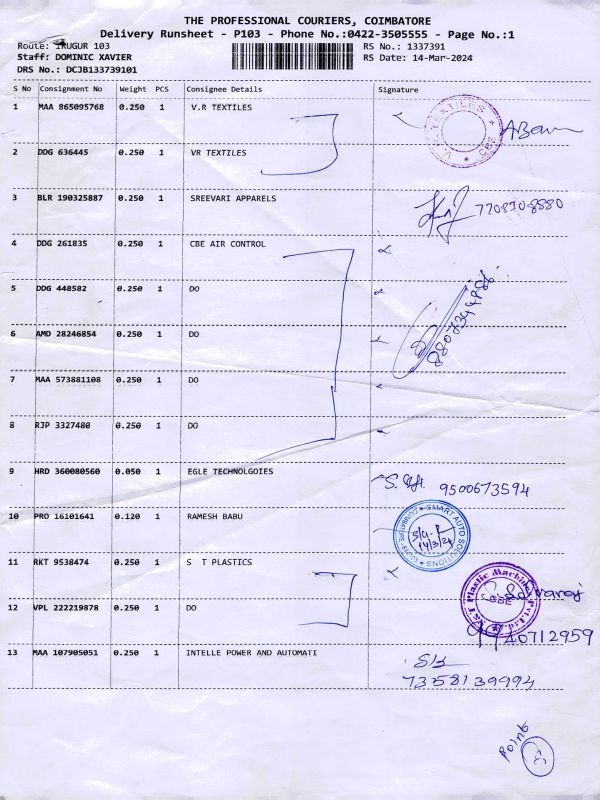 THE PROFESSIONAL COURIERS, COIMBATORE
Delivery Runsheet - P103 - Phone No.:0422-3505555 - Page No.:1
Route: IRUGUR 103
RS No.: 1337391
Staff: DOMINIC XAVIER
RS Date: 14-Mar-2024
DRS No.: DCJB133739101
S No Consignment No Weight PCS Consignee Details Signature
1 MAA 865095768 0.250 1 V.R TEXTILES
TEXTILES CBE
2 DDG 636445 0.250 1 VR TEXTILES
3 BLR 190325887 0.250 1 SREEVARI APPARELS
4 DDG 261835 0.250 1 CBE AIR CONTROL
5 DDG 448582 0.250 1 DO
6 AMD 28246854 0.250 1 DO
7 MAA 573881108 0.250 1 DO
8 RJP 3327480 0.250 1 DO
9 HRD 360080560 0.050 1 EGLE TECHNOLGOIES 9500673594
10 PRO 16101641 0.120 1 RAMESH BABU
SMART AUTO SOLUTIONS
14/3/24
11 RKT 9538474 0.250 1 S T PLASTICS
12 VPL 222219878 0.250 1 DO
CBE
13 MAA 107905051 0.250 1 INTELLE POWER AND AUTOMATI
7358139994
Point